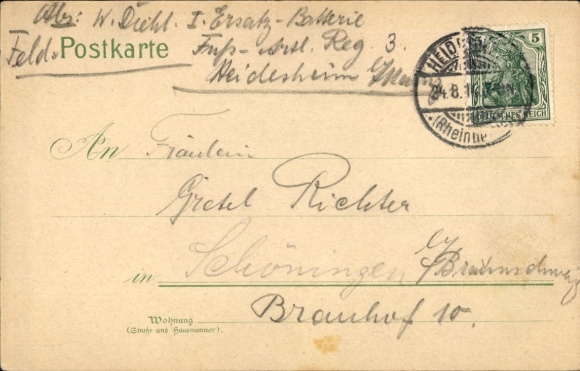 Abs: W. Diehl I. Ersatz-Batterie
Feld- Postkarte Fuß-Artl. Reg. 3.
Heidesheim b/Mainz
HEIDES
24.8.14
(Rheinhe
5
DEUTSCHES REICH
An Fräulein
Gretel Richter
in Schöningen b/Braunschweig
Brauhof 10.
Wohnung
(Straße und Hausnummer).